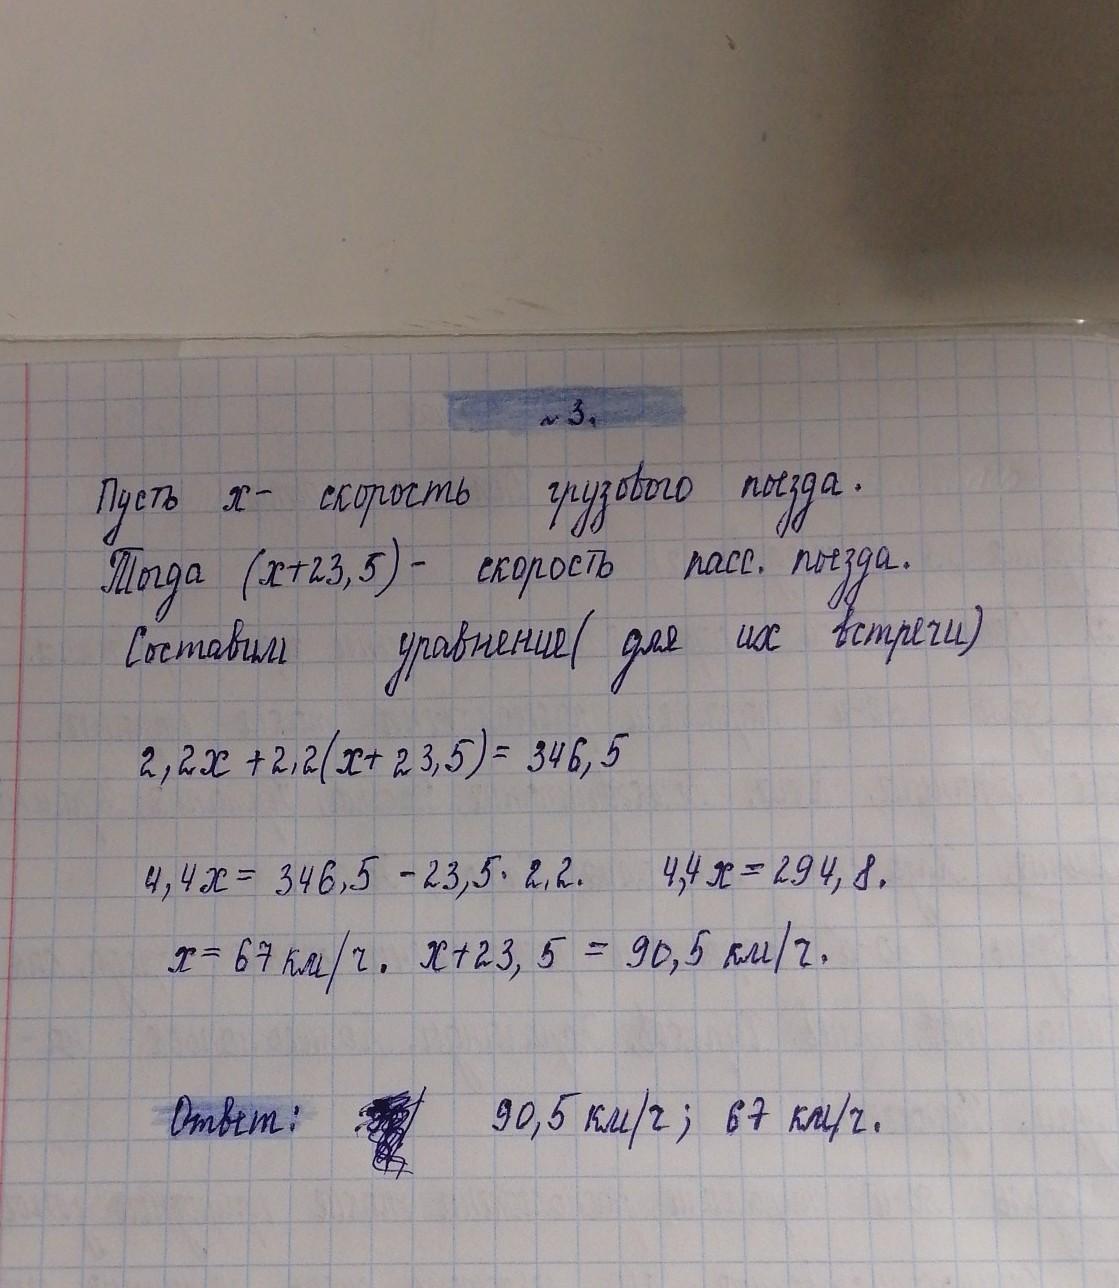 ~ 3.
Пусть х- скорость грузового поезда.
Тогда (х+23,5)- скорость пасс. поезда.
Составим уравнение( для их встречи)
2,2х +2,2(х+ 23,5)= 346,5
4,4х= 346,5 -23,5· 2,2. 4,4х=294,8.
х= 67 км/ч. х+23,5 = 90,5 км/ч.
Ответ: 90,5 км/ч; 67 км/ч.